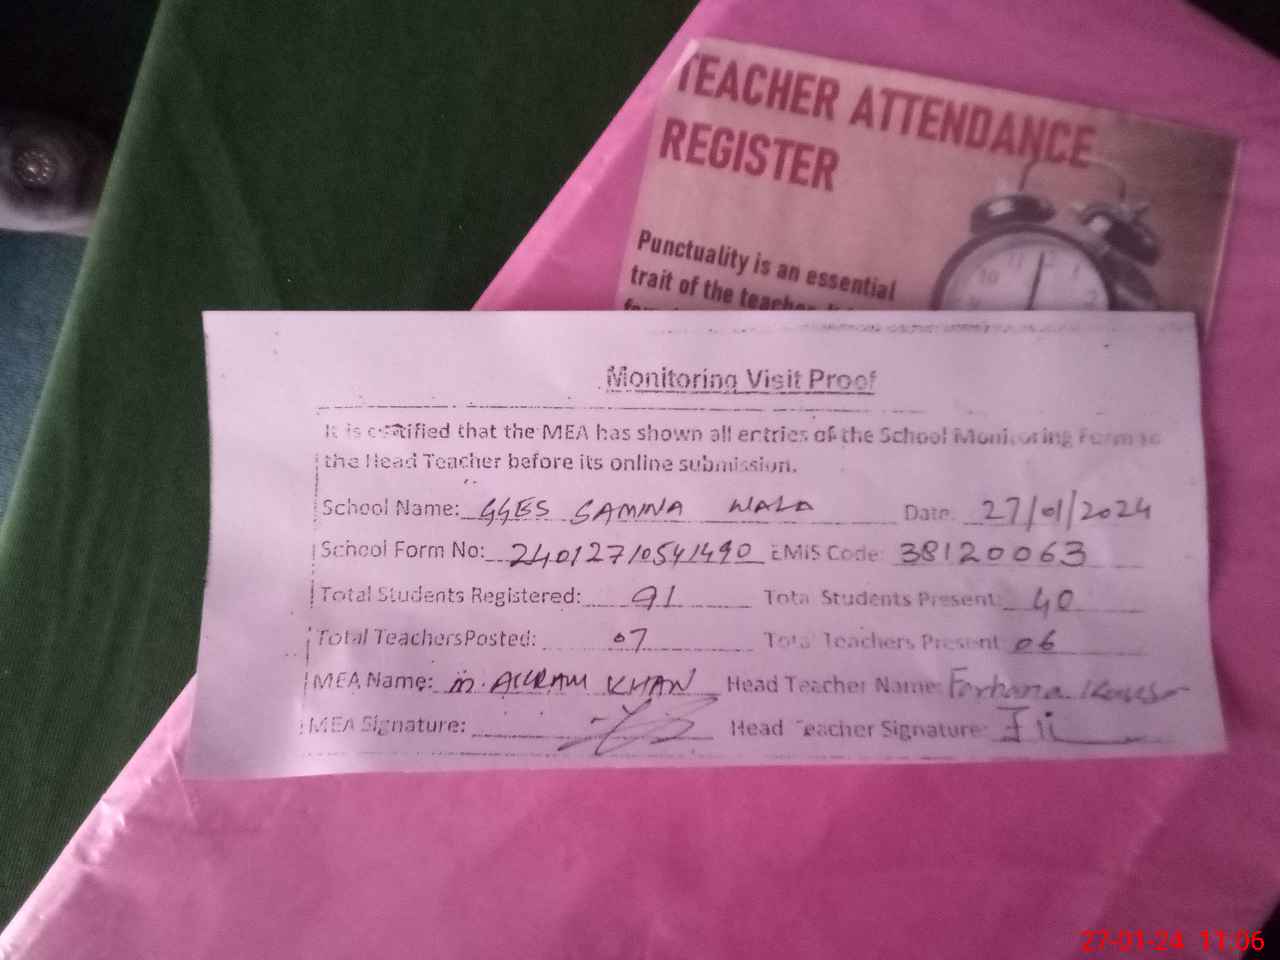 TEACHER ATTENDANCE
REGISTER
Punctuality is an essential
trait of the teacher.
Monitoring Visit Proof
It is certified that the MEA has shown all entries of the School Monitoring Form to
the Head Teacher before its online submission.
School Name: GGES SAMNA WALA Date: 27/01/2024
School Form No: 24012710541490 EMIS Code: 38120063
Total Students Registered: 91 Total Students Present: 40
Total Teachers Posted: 07 Total Teachers Present: 06
MEA Name: M. AKRAM KHAN Head Teacher Name: Farhana
MEA Signature: Head Teacher Signature:
27-01-24 11:06